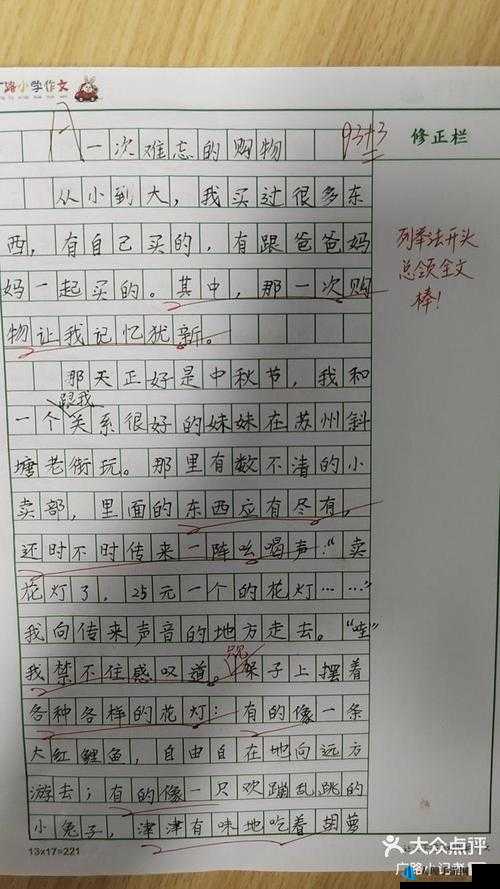 广路小学作文
A 一次难忘的购物 93+3
修正栏
从小到大，我买过很多东
西，有自己买的，有跟爸爸妈
妈一起买的。其中，那一次购
物让我记忆犹新。
列举法开头
总领全文
棒！
那天正好是中秋节，我和
跟我
一个关系很好的妹妹在苏州斜
塘老街玩。那里有数不清的小
卖部，里面的东西应有尽有，
还时不时传来一阵吆喝声：“卖
花灯了，25元一个的花灯……”
我向传来声音的地方走去。“哇”
我禁不住感叹道。架子上摆着
各种各样的花灯：有的像一条
大红鲤鱼，自由自在地向远方
游去；有的像一只欢蹦乱跳的
小兔子，津津有味地吃着胡萝
13×17=221
大众点评
广路小记者